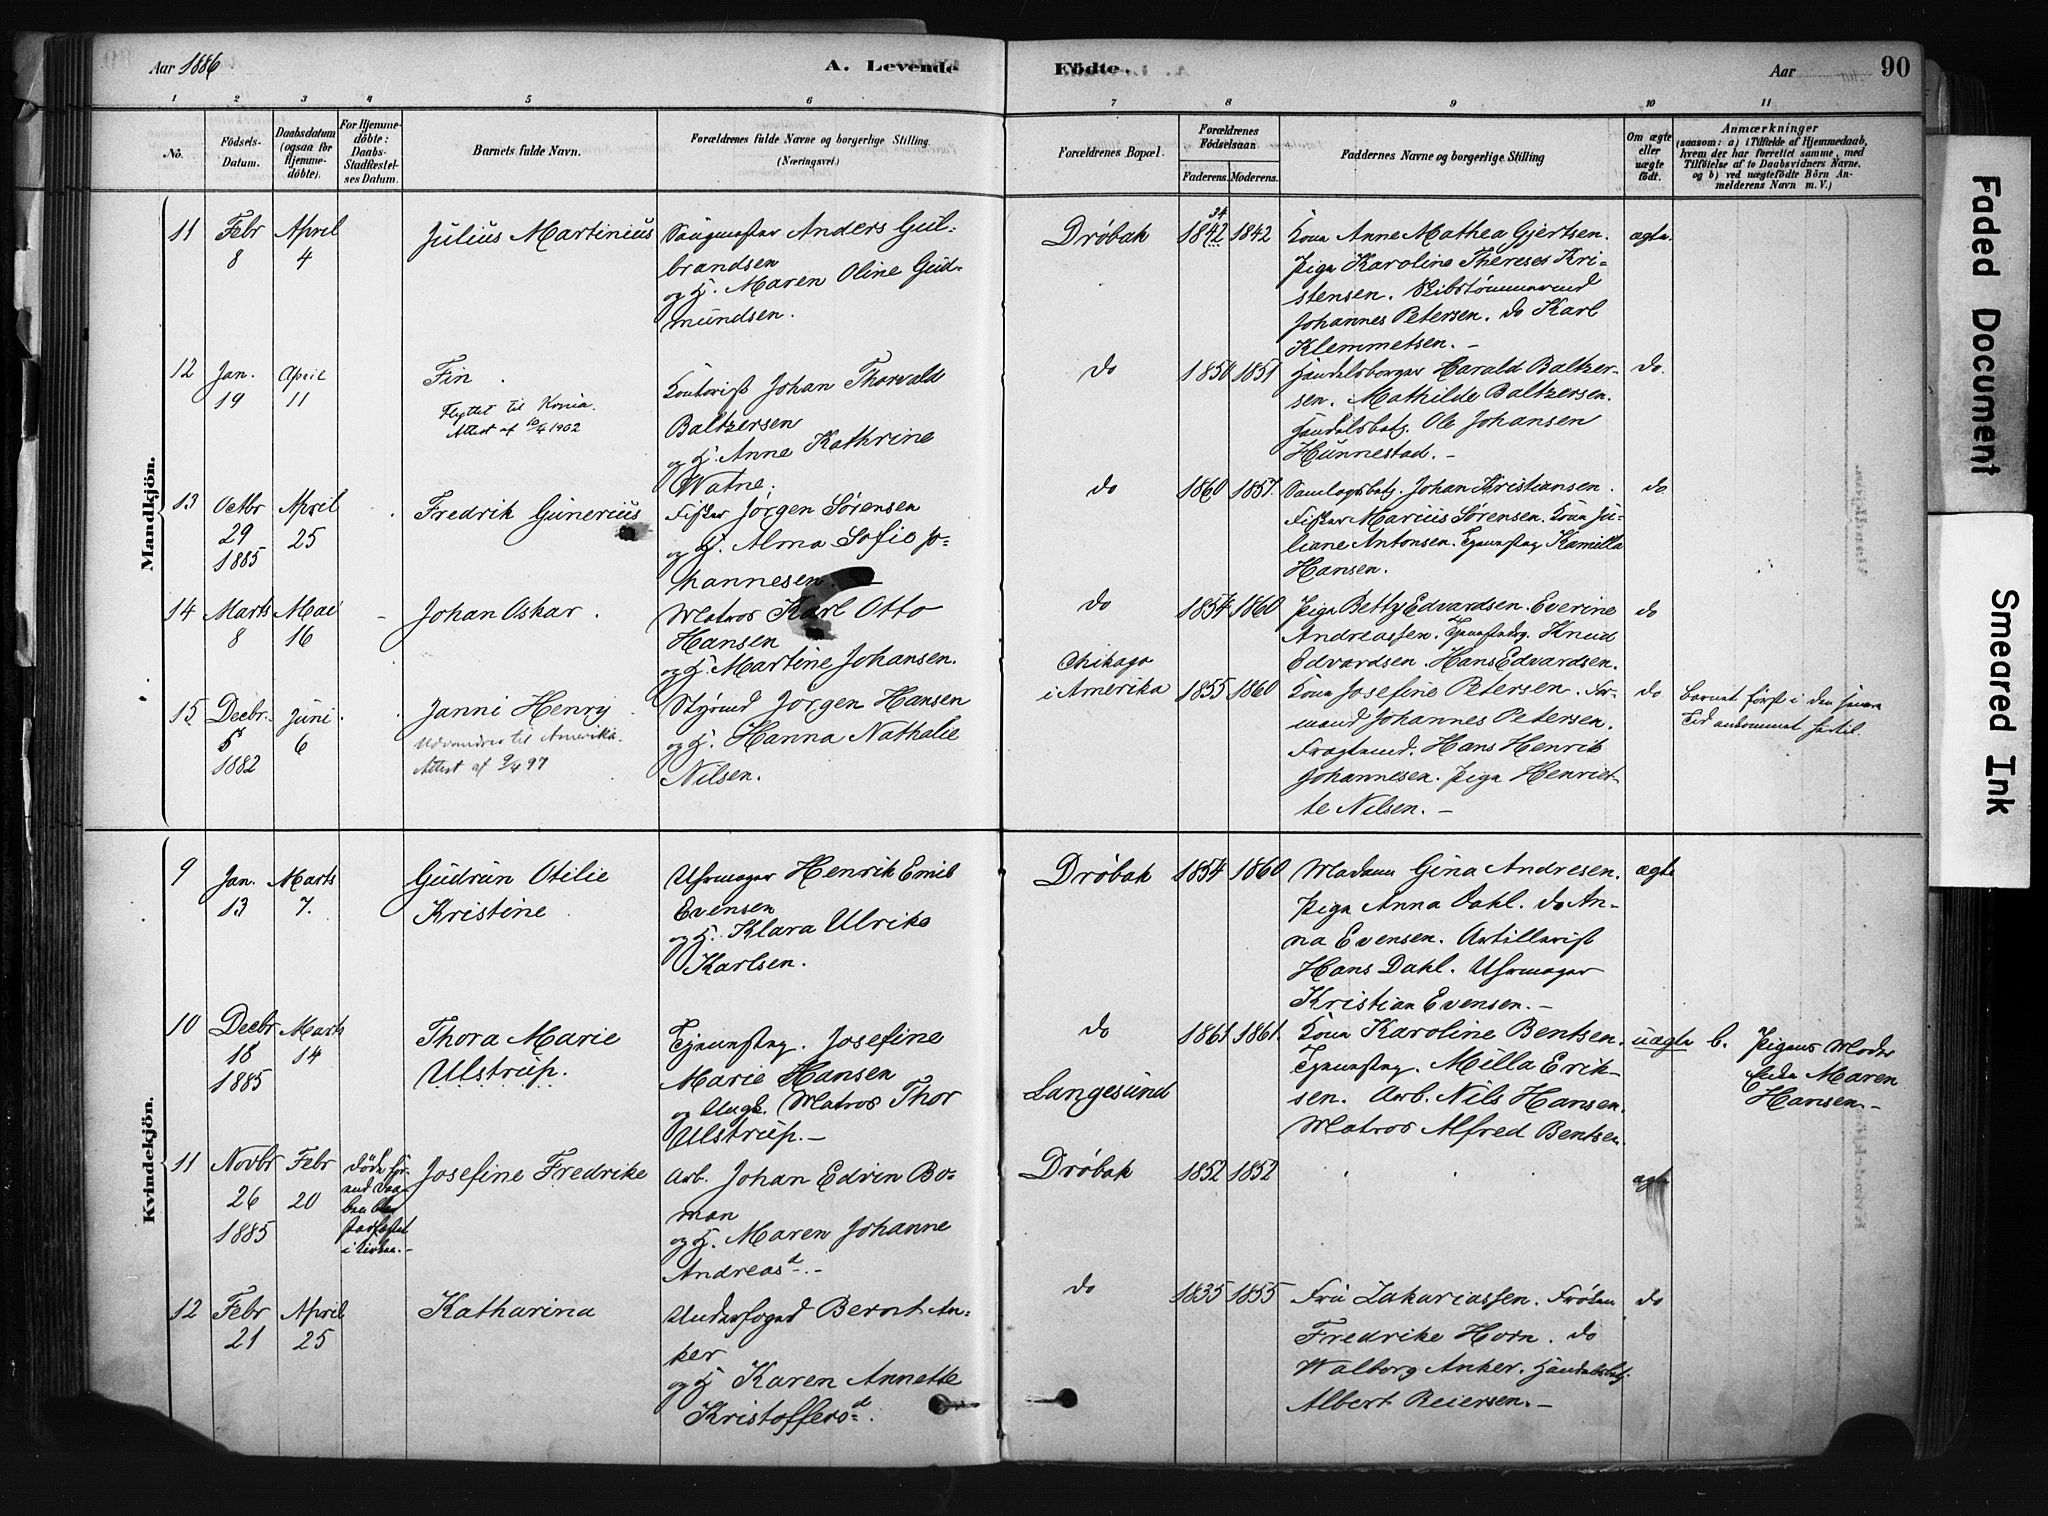 Aar 1886
A. Levende
Födte.
Aar
90
1 2 3 4 5 6 7 8 9 10 11
No.
Födsels-
Datum.
Daabsdatum
(ogsaa for
Hjemme-
döbte).
For Hjemme-
döbte:
Daabs-
Stadfæstel-
ses Datum.
Barnets fulde Navn.
Forældrenes fulde Navne og borgerlige Stilling.
(Næringsvei.)
Forældrenes Bopæl.
Forældrenes
Födselsaar.
Faderens. Moderens.
Faddernes Navne og borgerlige Stilling
Om ægte
eller
uægte
födt.
Anmærkninger
(saasom: a) i Tilfælde af Hjemmedaab,
hvem der har forrettet samme, med
Tilföielse af to Daabsvidners Navne.
og b) ved uægtefödte Börn An-
melderens Navn m. V.)
Mandkjön.
11
Febr
8
April
4
Julius Martinius
Anders Gul-
brandsen
og H. Maren Oline Gud-
mundsen.
Drøbak
34
1842
1842
Kone Anne Mathea Gjertsen.
Pige Karoline Therese Kri-
stensen. Skibstømmermand
Johannes Petersen. do Karl
Klemmetsen. –
ægte.
12
Jan.
19
April
11
Fin
Flyttet til Kr.nia.
Attest af 16/4 1902
Kontorist Johan Thorvald
Baltzersen
og H. Anne Kathrine
Watne.
do
1850
1851
Handelsborger Harald Baltzer-
sen. Mathilde Baltzersen.
Handelsbetj. Ole Johansen
Hunnestad. –
do.
13
Octbr
29
1885
April
25
Fredrik Gunerius
Fisker Jørgen Sørensen
og H. Alma Sofie Jo-
hannesen. –
do
1860
1857.
Samlagsbetj. Johan Kristiansen.
Fisker Marius Sørensen. Kone Ju-
liane Antonsen. Tjenestpg Kamilla
Hansen.
do.
14
Marts
8
Mai
16
Johan Oskar.
Matros Karl Otto
Hansen
og H. Martine Johansen.
do
1854
1860
Pige Betty Edvardsen. Everine
Andreassen. Tjenestedrg. Knud
Edvardsen. Hans Edvardsen.
do
15
Decbr.
5
1882
Juni
6
Janni Henry
Udvandrer til Amerika.
Attest af 9/4 97
Styrmd Jørgen Hansen
og H. Hanna Nathalie
Nilsen.
Chikago
i Amerika
1855
1860
Kone Josefine Petersen. For-
mand Johannes Petersen.
Fragtmd. Hans Henrik
Johannesen. Pige Henriet-
te Nilsen. –
do
Barnet først i den senere
Tid ankommet hertil.
Kvindekjön.
9
Jan.
13
Marts
7.
Gudrun Otilie
Kristine
Uhrmager Henrik Emil
Evensen
og H. Klara Ulrike
Karlsen.
Drøbak
1854
1860
Madam Gina Andresen.
Pige Anna Dahl. do An-
na Evensen. Artillerist
Hans Dahl. Uhrmager
Kristian Evensen. –
ægte
10
Decbr
18
1885
Marts
14
Thora Marie
Ulstrup.
Tjenestpg. Josefine
Marie Hansen
og Ungk. Matros Thor
Ulstrup. –
do
Langesund
1861
1861.
Kone Karoline Bentsen.
Tjenestpg. Milla Erik-
sen. Arb. Nils Hansen.
Matros Alfred Bentsen.
uægte
b. Pigens Moder
Maren
Hansen. –
11
Novbr
26
1885
Febr
20
døde før-
end Daa-
ben blev
stadfæstet
i Kirken. –
Josefine Fredrike
Arb. Johan Edvin Bo-
man
og H. Maren Johanne
Andreasd. –
Drøbak
1852
1852
ægte
12
Febr
21
April
25
Katharina
Underfoged Bernt An-
ker
og H Karen Annette
Kristoffersd.
do
1835
1855
Fru Zakariassen. Frøken
Fredrike Horn. do
Walborg Anker. Handelsbetj.
Albert Reiersen. –
do
Faded Document
Smeared Ink